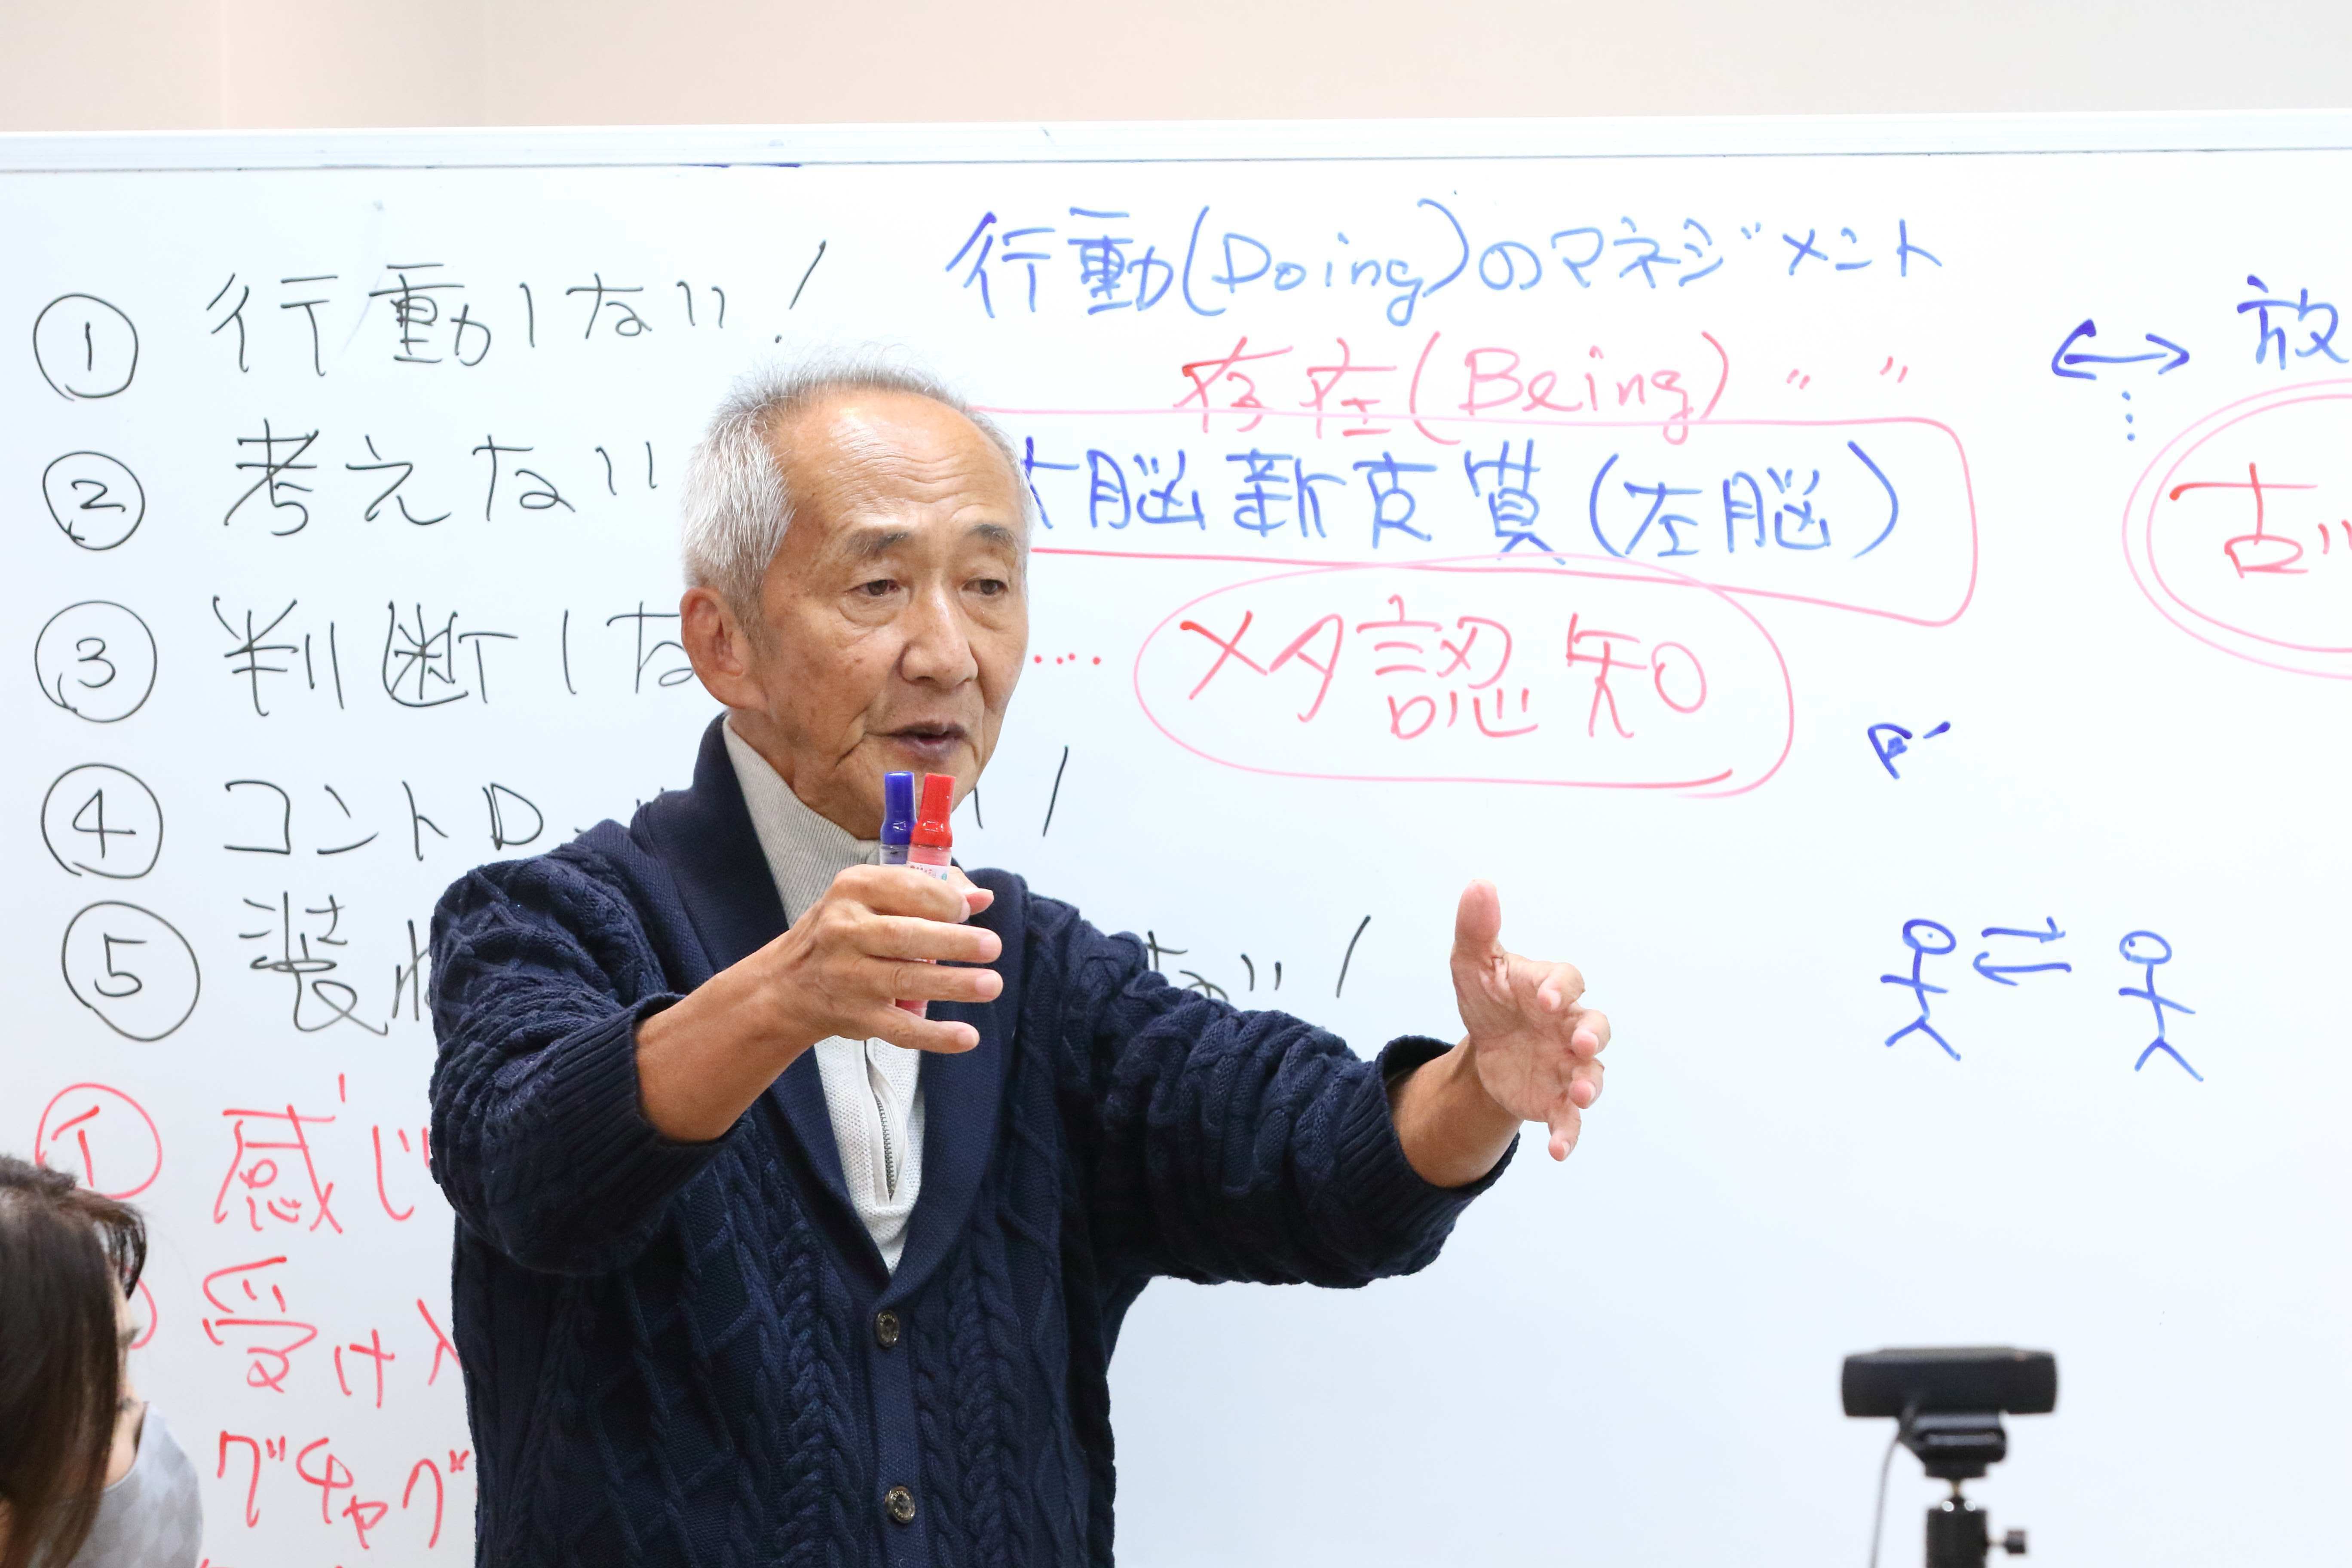 ① 行動しない!
② 考えない
③ 判断しな
④ コントロー
⑤ 装わ ない!
① 感じ
受け入
グチャグ
行動(Doing)のマネジメント
存在(Being) 〃 〃
大脳新皮質(左脳)
… メタ認知
↔ 放
古い